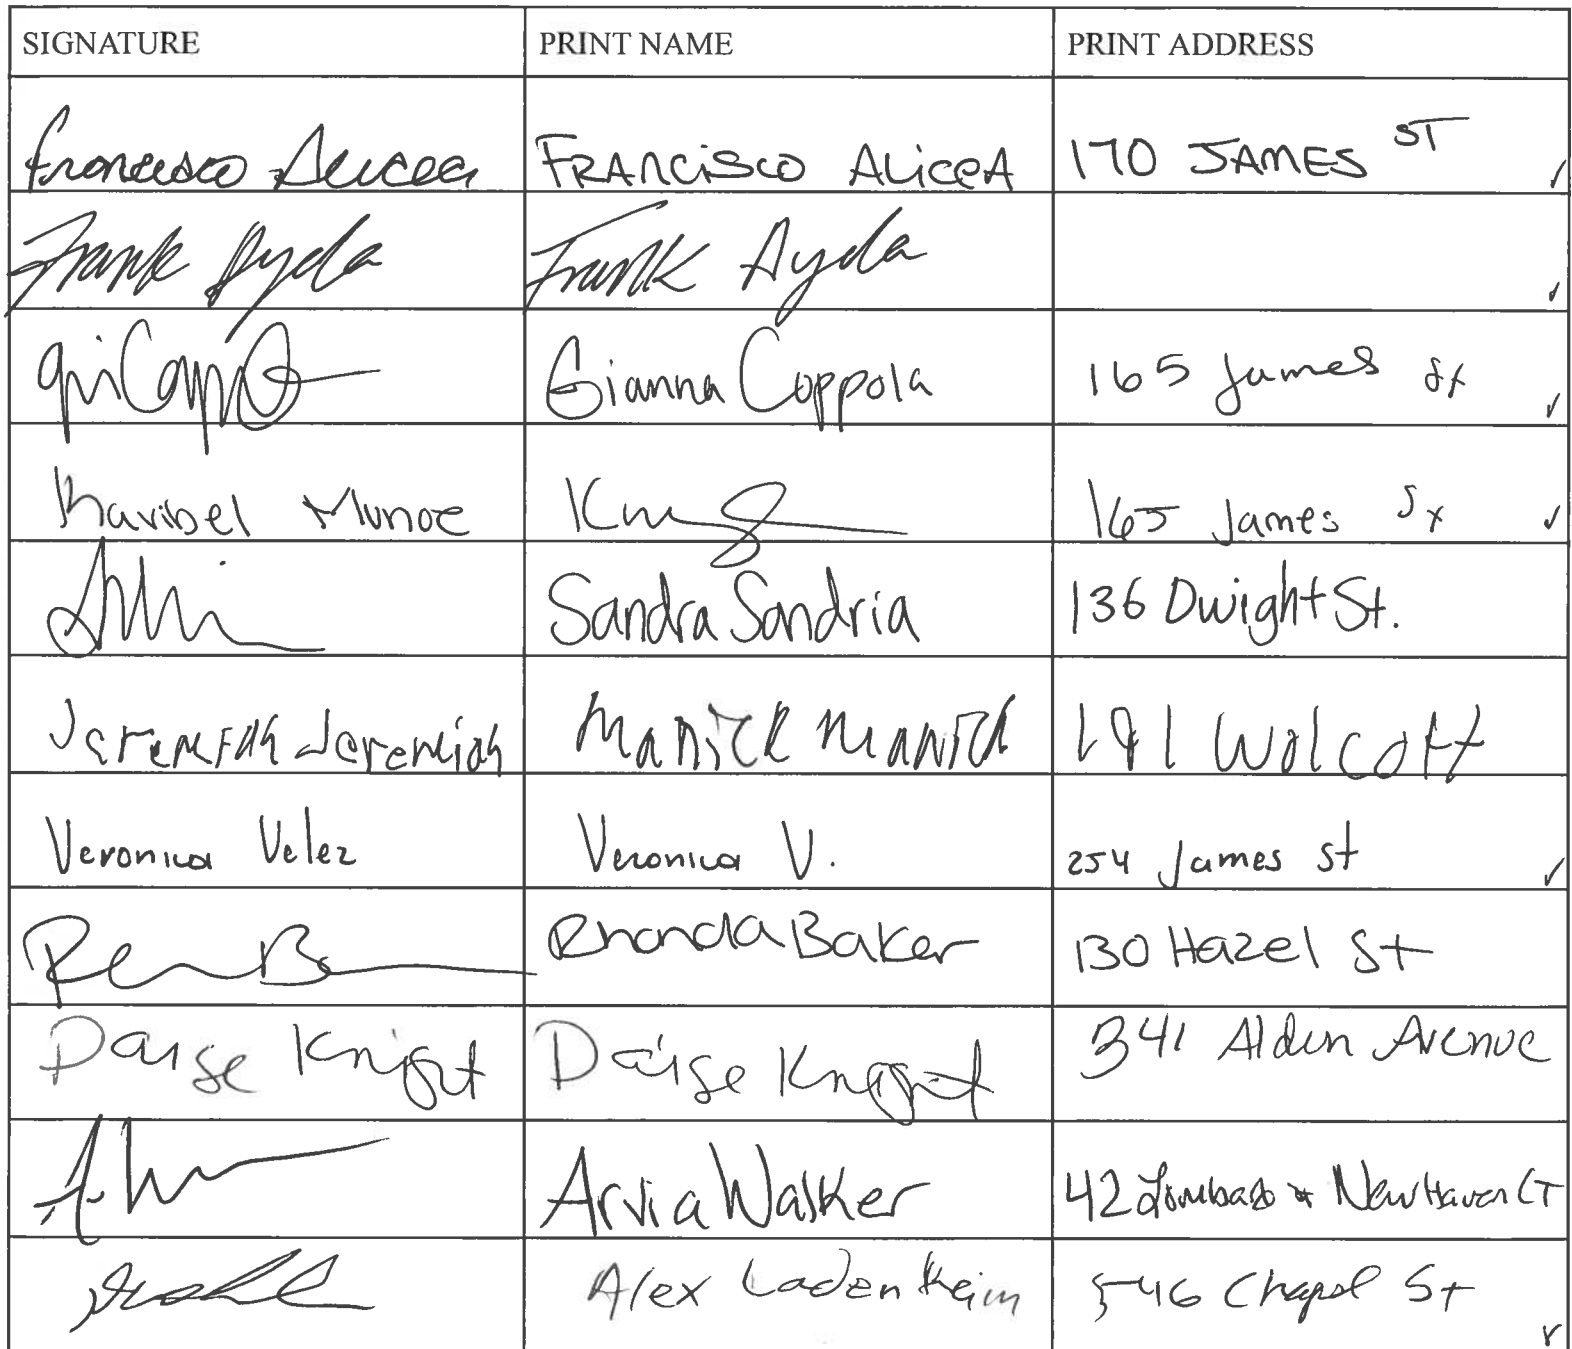 SIGNATURE PRINT NAME PRINT ADDRESS
Francisco Alicea FRANCISCO ALiceA 170 JAMES ST
Frank Ayda Frank Ayda
Gianna Coppola 165 James St
Karibel Munoz 165 James St
Sandra Sandria 136 Dwight St.
Jeremiah Jeremiah Manick Manick 191 Wolcott
Veronica Velez Veronica V. 254 James St
Rhonda Baker 130 Hazel St
Knight 341 Alden Avenue
Arvia Walker 42 New Haven CT
Alex Ladenheim 546 Chapel St